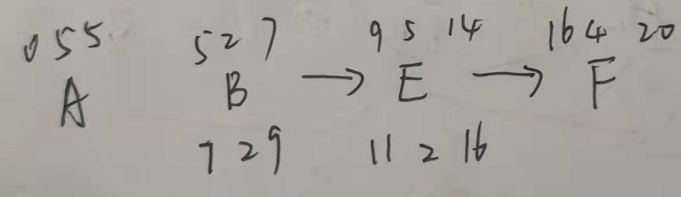 0 5 5 5 2 7 9 5 14 16 4 20
A B → E → F
7 2 9 11 2 16